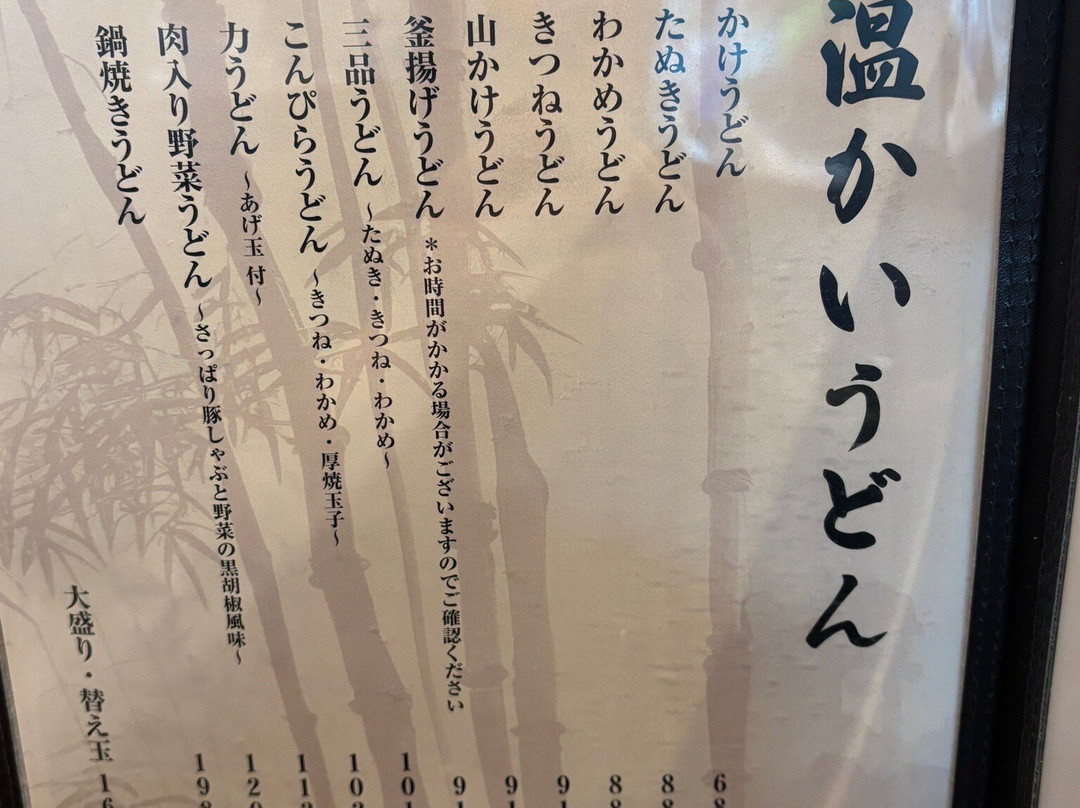 温かいうどん
かけうどん
たぬきうどん
わかめうどん
きつねうどん
山かけうどん
釜揚げうどん ＊お時間がかかる場合がございますのでご確認ください
三品うどん ～たぬき・きつね・わかめ～
こんぴらうどん ～きつね・わかめ・厚焼玉子～
力うどん ～あげ玉 付～
肉入り野菜うどん ～さっぱり豚しゃぶと野菜の黒胡椒風味～
鍋焼きうどん
大盛り・替え玉